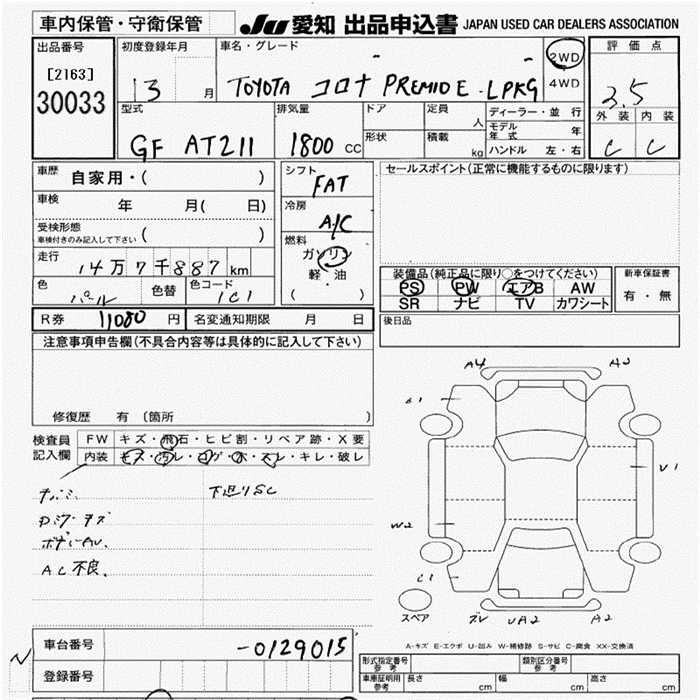 車内保管・守衛保管
JU 愛知 出品申込書 JAPAN USED CAR DEALERS ASSOCIATION
出品番号
[2163]
30033
初度登録年月
13 月
車名・グレード
TOYOTA コロナ PREMIO E LPKG
2WD
4WD
評価点
3.5
外装 内装
C C
型式
GF AT211
排気量
1800 CC
ドア
形状
定員 人
積載 kg
ディーラー・並行
モデル年式 年
ハンドル 左・右
車歴 自家用・( )
車検 年 月( 日)
受検形態
車検付きのみ記入して下さい ( )
走行
14万7千887 km
色 パール 色替
色コード 1C1
シフト
FAT
冷房
A/C
燃料
ガソリン
軽・油
( )
セールスポイント(正常に機能するものに限ります)
装備品(純正品に限り○をつけてください)
PS PW エアB AW
SR ナビ TV カワシート
新車保証書
有・無
R券 11080 円 名変通知期限 月 日
後日品
注意事項申告欄(不具合内容等は具体的に記入して下さい)
修復歴 有 〔箇所 〕
検査員記入欄
FW キズ・飛石・ヒビ割・リペア跡・X要
内装 キズ・汚レ・コゲ・穴・スレ・キレ・破レ
下廻りSC
AC不良、
A4 A3
V1
W2
C1
スペア
UA2 A2
A-キズ E-エクボ U-凹み W-補修跡 S-サビ C-腐食 XX-交換済
車台番号 -0129015
登録番号
形式指定番号 参考
類別区分番号 参考
車庫証明用 参考 長さ cm 幅 cm 高さ cm